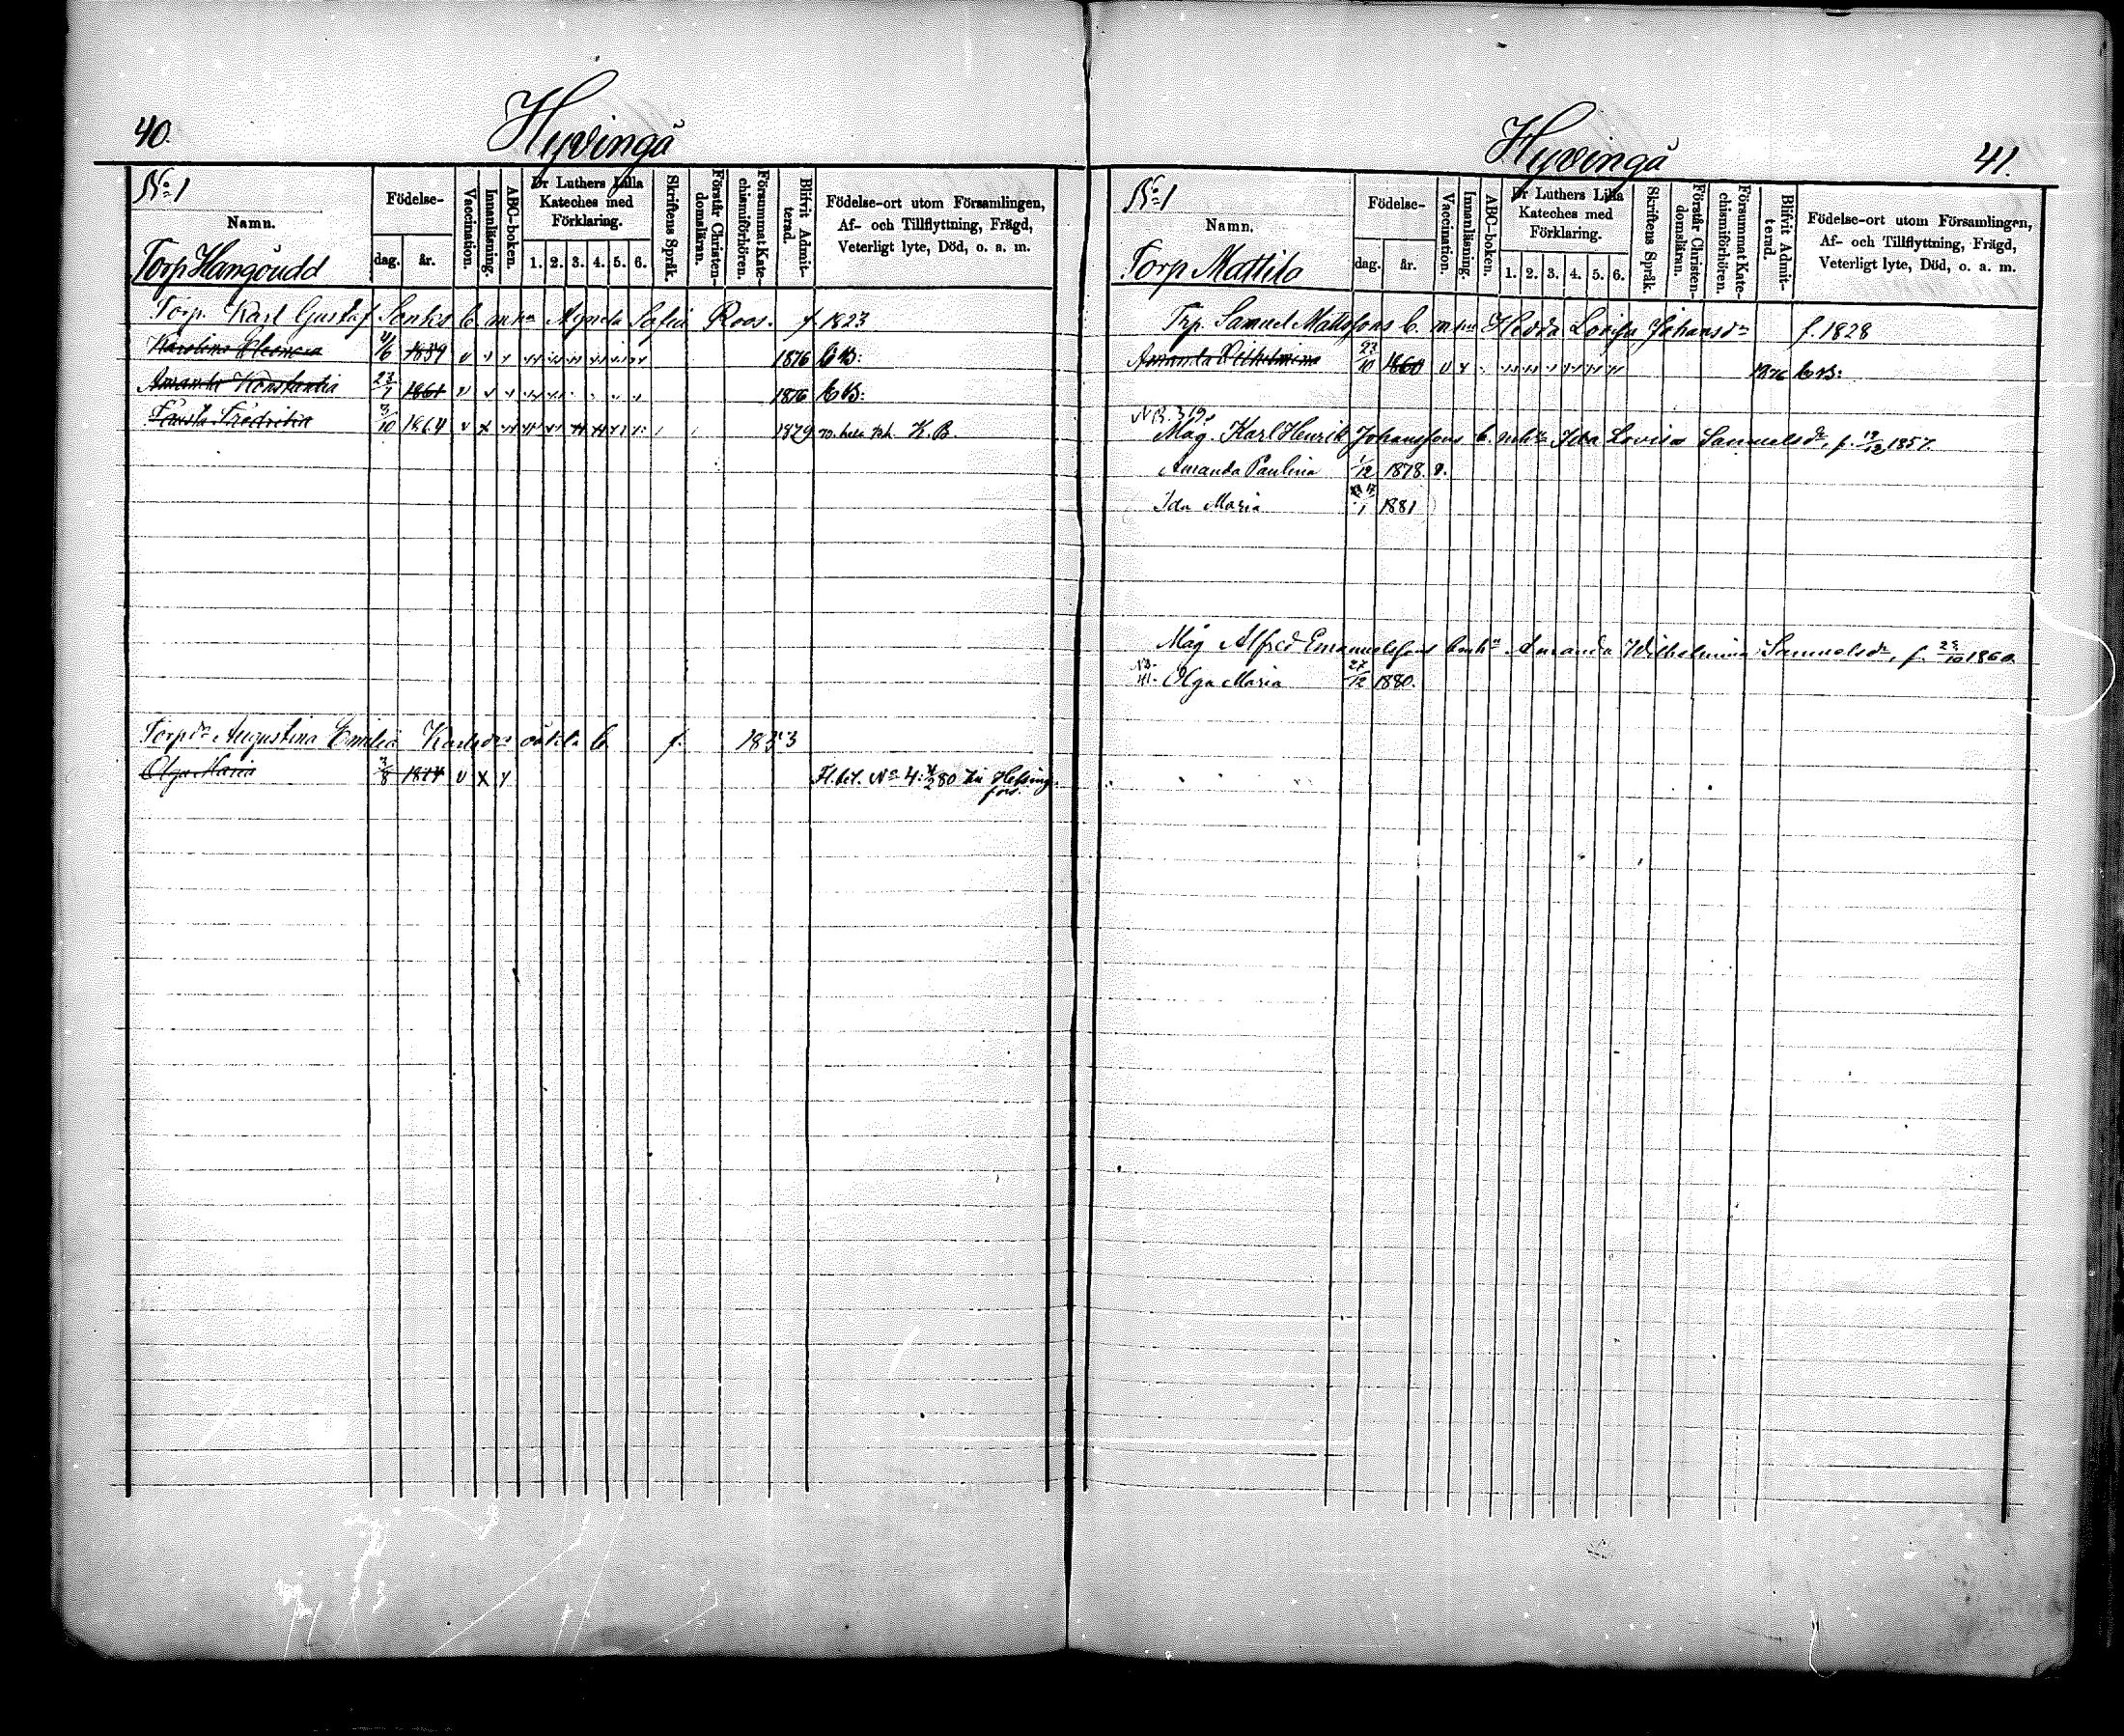 40.
Hyvingå
No 1
Namn.
Födelse-
dag.
år.
Vaccination.
Innanläsning.
ABC-boken.
Dr Luthers Lilla
Kateches med
Förklaring.
1. 2. 3. 4. 5. 6.
Skriftens Språk.
Förstår Christen-
domsläran.
Försummat Kate-
chismiförhören.
Blifvit Admit-
terad.
Födelse-ort utom Församlingen,
Af- och Tillflyttning, Frägd,
Veterligt lyte, Död, o. a. m.
Torp Hangöudd
Torp. Karl Gustaf b. m hn Agneta Sofia Roos. f 1823
Karolina Eleonora 1859 1876
Amanda Konstantia 23/7 1861 1876
Fredrika 1864 1879 K.B.
Torpdr Augustina Emilia f.
Olga Maria 3/8 Fl. bet. No 4: 80 till Helsing-
fors.
Hyvingå
41.
No 1
Namn.
Födelse-
dag.
år.
Vaccination.
Innanläsning.
ABC-boken.
Dr Luthers Lilla
Kateches med
Förklaring.
1. 2. 3. 4. 5. 6.
Skriftens Språk.
Förstår Christen-
domsläran.
Försummat Kate-
chismiförhören.
Blifvit Admit-
terad.
Födelse-ort utom Församlingen,
Af- och Tillflyttning, Frägd,
Veterligt lyte, Död, o. a. m.
Torp Mattila
Trp. Samuel Mattssons b. m hn Hedda Lovisa Johansdr f. 1828
Amanda Wilhelmina 23/10 1860 1876
Måg. Karl Henrik Johanssons b. mhn Ida Lovisa Samuelsdr, f. 1857.
Amanda Paulina 1/12 1878
Ida Maria 1881
Måg Alfred Emanuelssons b mhn Amanda Wilhelmina Samuelsdr, f. 23/10 1860.
Olga Maria 27/12 1880.